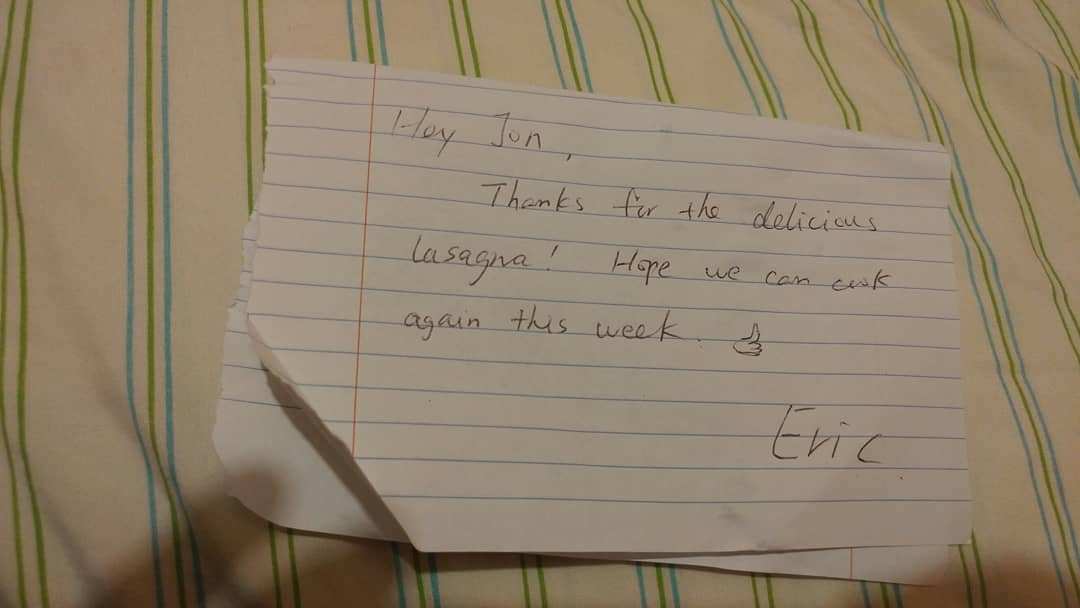 Hey Jon,
Thanks for the delicious
lasagna! Hope we can cook
again this week. 👍
Eric